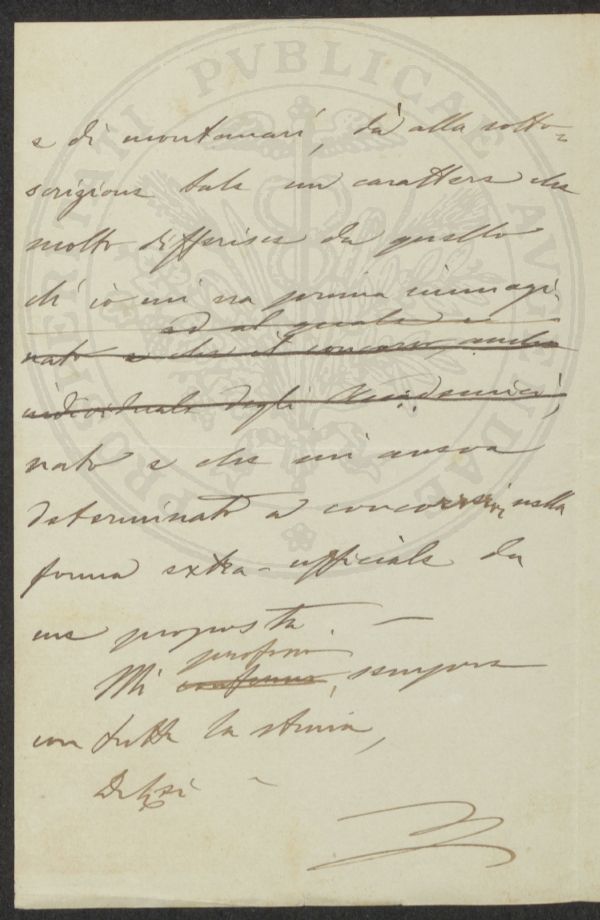 e di montanari, dà alla sotto=
scrizione tale un carattere che
molto differisce da quello
ch'io mi era prima immagi-
ed al quale
nato e che il concorso, anche
individuale degli Accademici,
nato e che mi aveva
determinato a concorrervi, nella
forma extra-ufficiale da
me proposta. —
profferro
Mi confermo, sempre
con tutta la stima,
PRO VERITATI PVBLICAE AVGENDAE